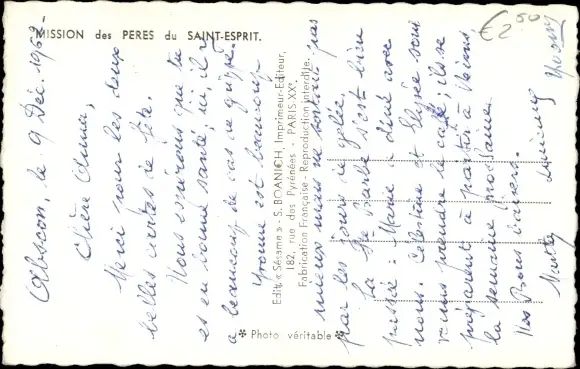 MISSION des PERES du SAINT-ESPRIT.
€ 2 50
Abscon, le 9 Déc. 1962
Chère Anna,
Merci pour les deux
belles cartes de fête.
Nous espérons que tu
es en bonne santé; ici, il y
a beaucoup de cas de grippe.
Yvonne est beaucoup
mieux mais ne sortira pas
par les jours de gelée.
La Ste Barbe s'est bien
passée: Marie a dîné avec
nous. Célestine et Elysée sont
venus prendre le café; ils se
préparent à partir à Reims,
la semaine prochaine.
Nos Bons baisers.
Marthe
Yvonne
Edit. « Sésame » - S. BOANICH, Imprimeur-Editeur,
182, rue des Pyrénées - PARIS-XXe.
Fabrication Française - Reproduction interdite.
Photo véritable